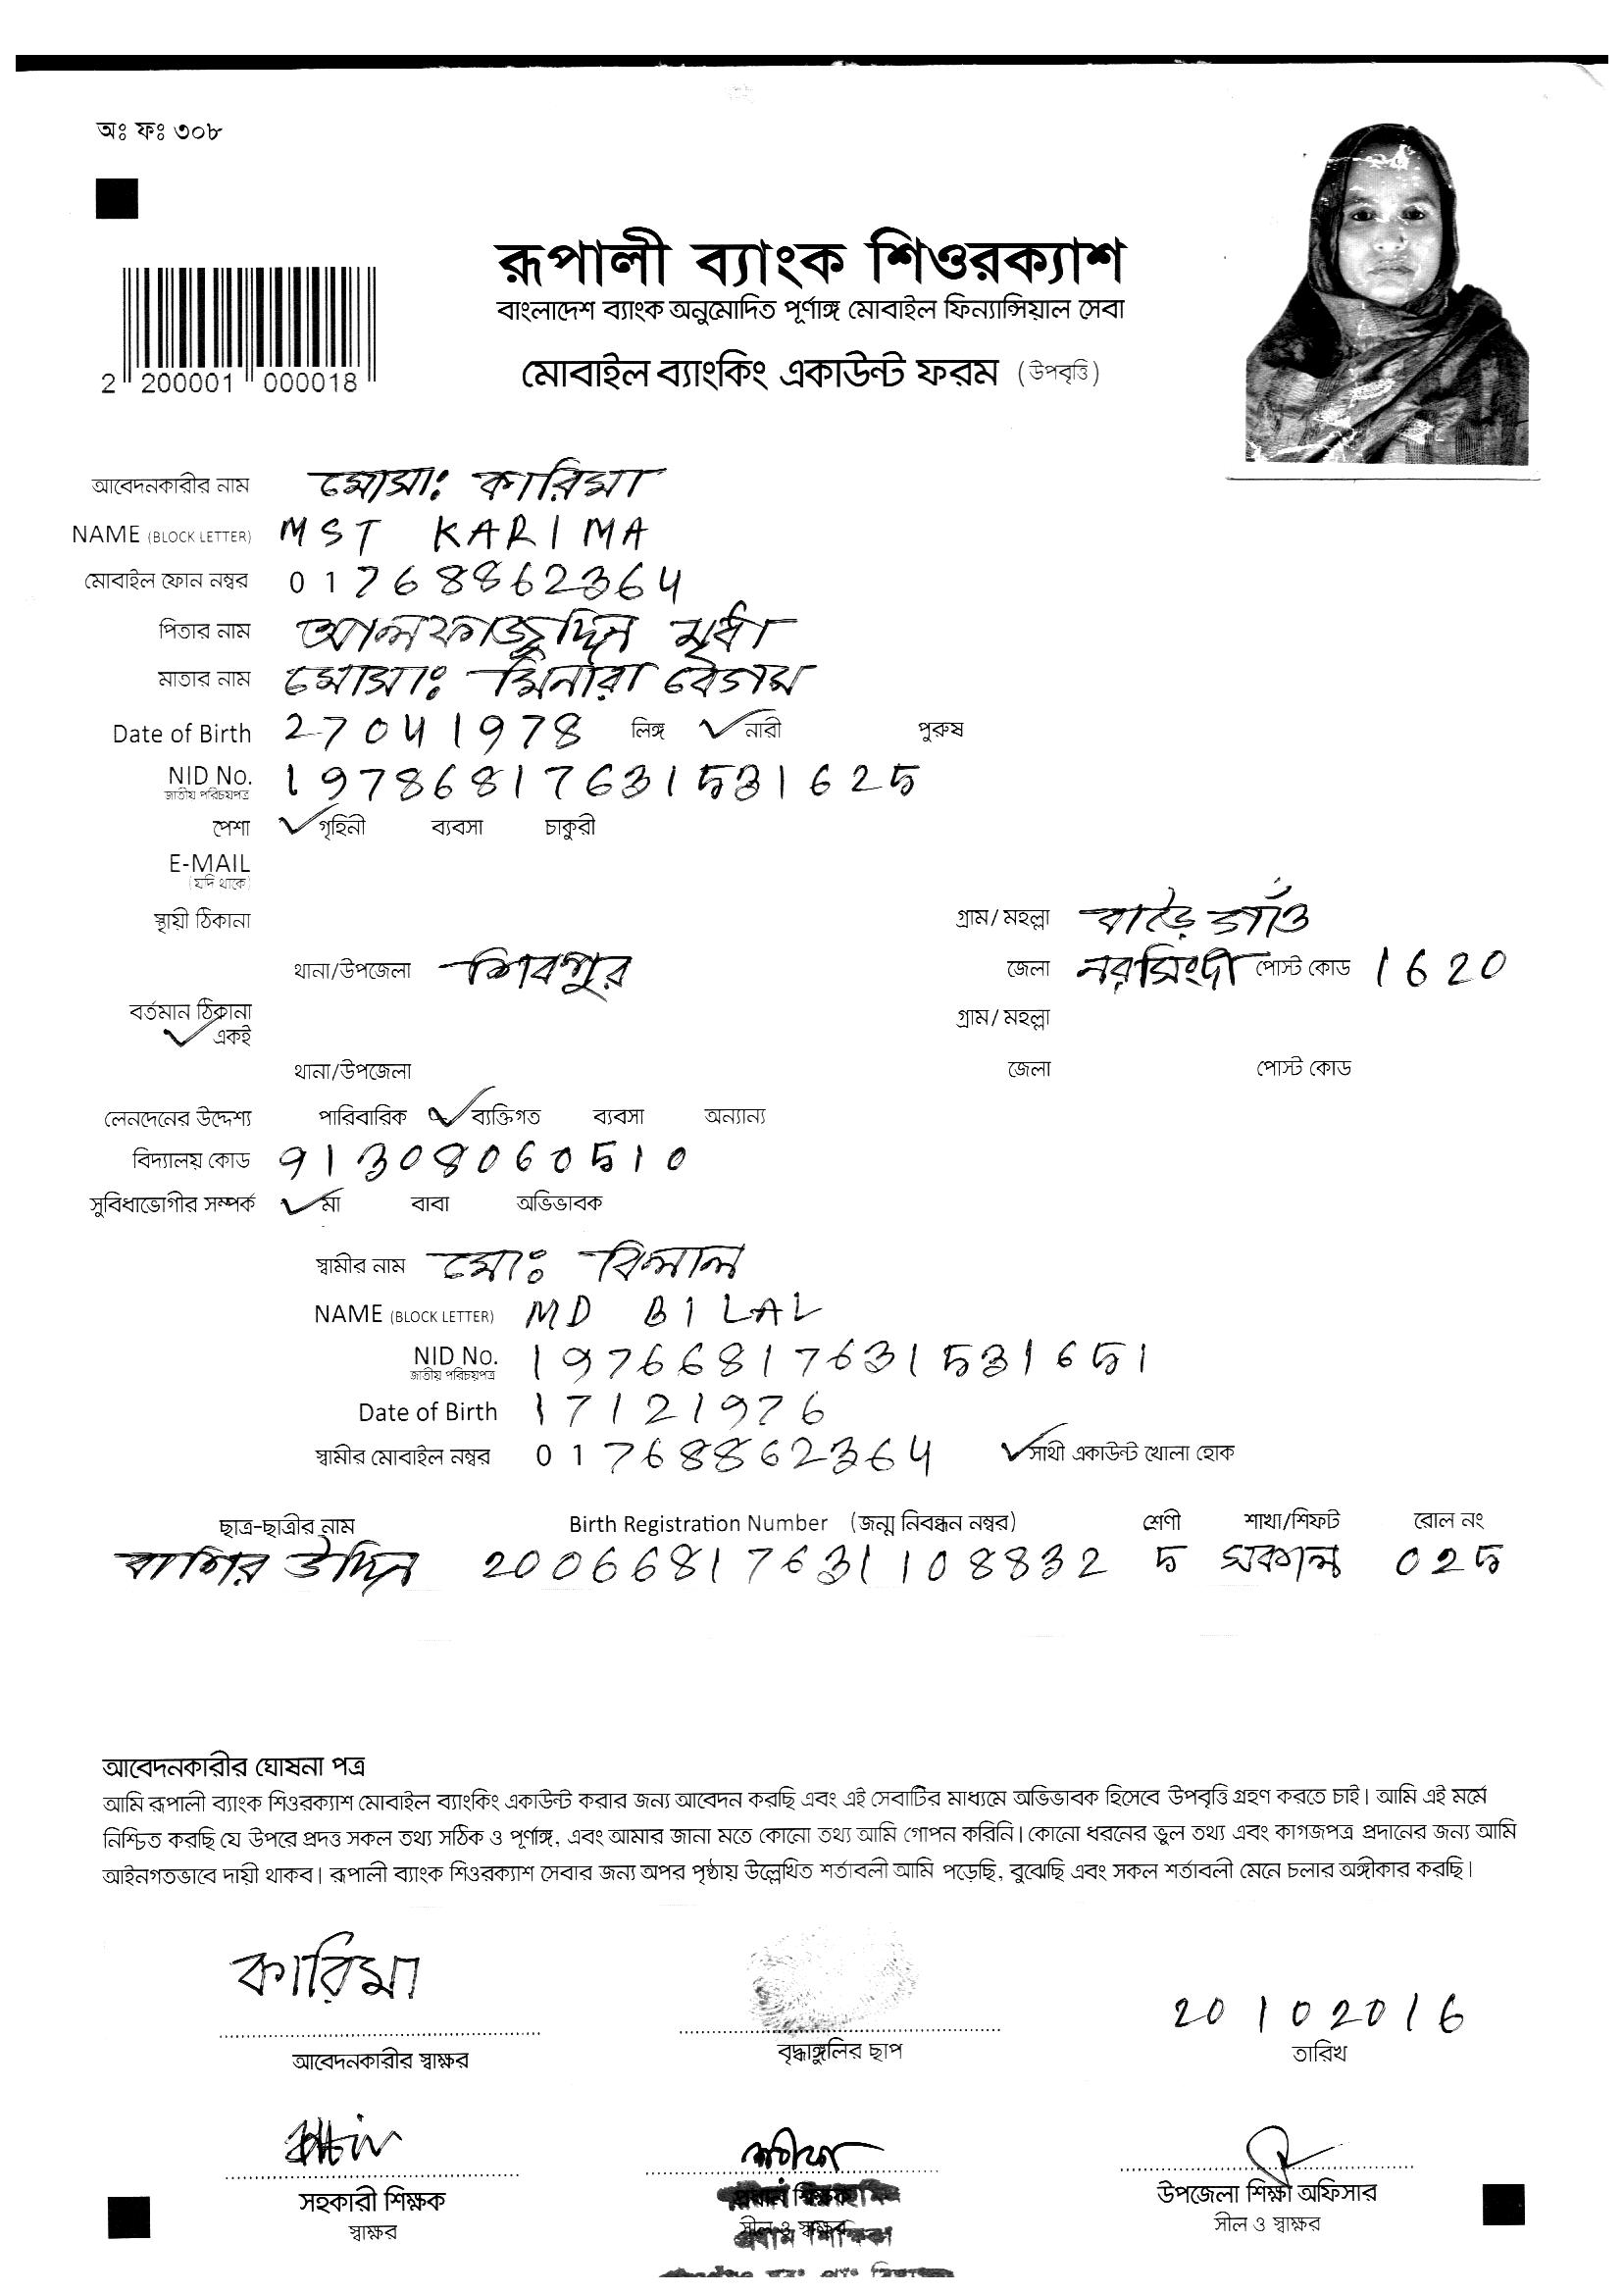 অঃ ফঃ ৩০৮
রূপালী ব্যাংক শিওরক্যাশ
বাংলাদেশ ব্যাংক অনুমোদিত পূর্ণাঙ্গ মোবাইল ফিন্যান্সিয়াল সেবা
মোবাইল ব্যাংকিং একাউন্ট ফরম (উপবৃত্তি)
2 200001 000018
আবেদনকারীর নাম মোসা: কারিমা
NAME (BLOCK LETTER) MST KARIMA
মোবাইল ফোন নম্বর 01768862364
পিতার নাম আলফাজুদ্দিন মৃধা
মাতার নাম মোসা: মিনারা বেগম
Date of Birth 27041978 লিঙ্গ ✓ নারী পুরুষ
NID No. 19786817631531625
জাতীয় পরিচয়পত্র
পেশা ✓ গৃহিনী ব্যবসা চাকুরী
E-MAIL
(যদি থাকে)
স্থায়ী ঠিকানা গ্রাম/মহল্লা বাড়ৈগাঁও
থানা/উপজেলা শিবপুর জেলা নরসিংদী পোস্ট কোড 1620
বর্তমান ঠিকানা গ্রাম/মহল্লা
✓ একই
থানা/উপজেলা জেলা পোস্ট কোড
লেনদেনের উদ্দেশ্য পারিবারিক ✓ ব্যক্তিগত ব্যবসা অন্যান্য
বিদ্যালয় কোড 91308060510
সুবিধাভোগীর সম্পর্ক ✓ মা বাবা অভিভাবক
স্বামীর নাম মো: বিলাল
NAME (BLOCK LETTER) MD BILAL
NID No. 19766817631531651
জাতীয় পরিচয়পত্র
Date of Birth 17121976
স্বামীর মোবাইল নম্বর 01768862364 ✓ সাথী একাউন্ট খোলা হোক
ছাত্র-ছাত্রীর নাম Birth Registration Number (জন্ম নিবন্ধন নম্বর) শ্রেণী শাখা/শিফট রোল নং
বাশির উদ্দিন 20066817631108832 ৫ সকাল 02৫
আবেদনকারীর ঘোষনা পত্র
আমি রূপালী ব্যাংক শিওরক্যাশ মোবাইল ব্যাংকিং একাউন্ট করার জন্য আবেদন করছি এবং এই সেবাটির মাধ্যমে অভিভাবক হিসেবে উপবৃত্তি গ্রহণ করতে চাই। আমি এই মর্মে
নিশ্চিত করছি যে উপরে প্রদত্ত সকল তথ্য সঠিক ও পূর্ণাঙ্গ, এবং আমার জানা মতে কোনো তথ্য আমি গোপন করিনি। কোনো ধরনের ভুল তথ্য এবং কাগজপত্র প্রদানের জন্য আমি
আইনগতভাবে দায়ী থাকব। রূপালী ব্যাংক শিওরক্যাশ সেবার জন্য অপর পৃষ্ঠায় উল্লেখিত শর্তাবলী আমি পড়েছি, বুঝেছি এবং সকল শর্তাবলী মেনে চলার অঙ্গীকার করছি।
কারিমা
20102016
আবেদনকারীর স্বাক্ষর বৃদ্ধাঙ্গুলির ছাপ তারিখ
সহকারী শিক্ষক প্রধান শিক্ষক উপজেলা শিক্ষা অফিসার
স্বাক্ষর সীল ও স্বাক্ষর সীল ও স্বাক্ষর
প্রধান শিক্ষক